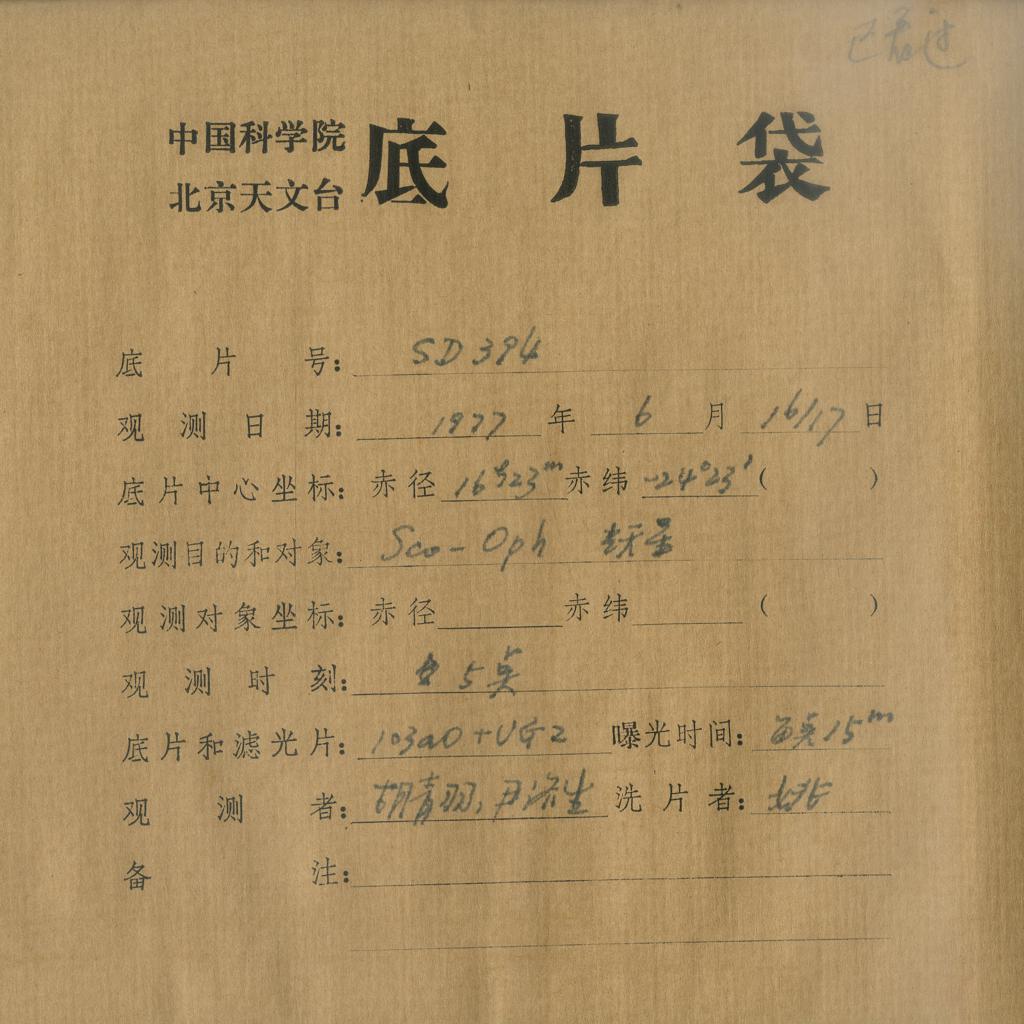 已看过
中国科学院
北京天文台
底片袋
底片号: SD 394
观测日期: 1977 年 6 月 16/17 日
底片中心坐标: 赤径 16h23m 赤纬 -24°23′ ( )
观测目的和对象: Sco-Oph
观测对象坐标: 赤径 赤纬 ( )
观测时刻: 5点
底片和滤光片: 103aO+UG2 曝光时间: 每点15m
观测者: 胡青羽, 尹济生 洗片者:
备注: